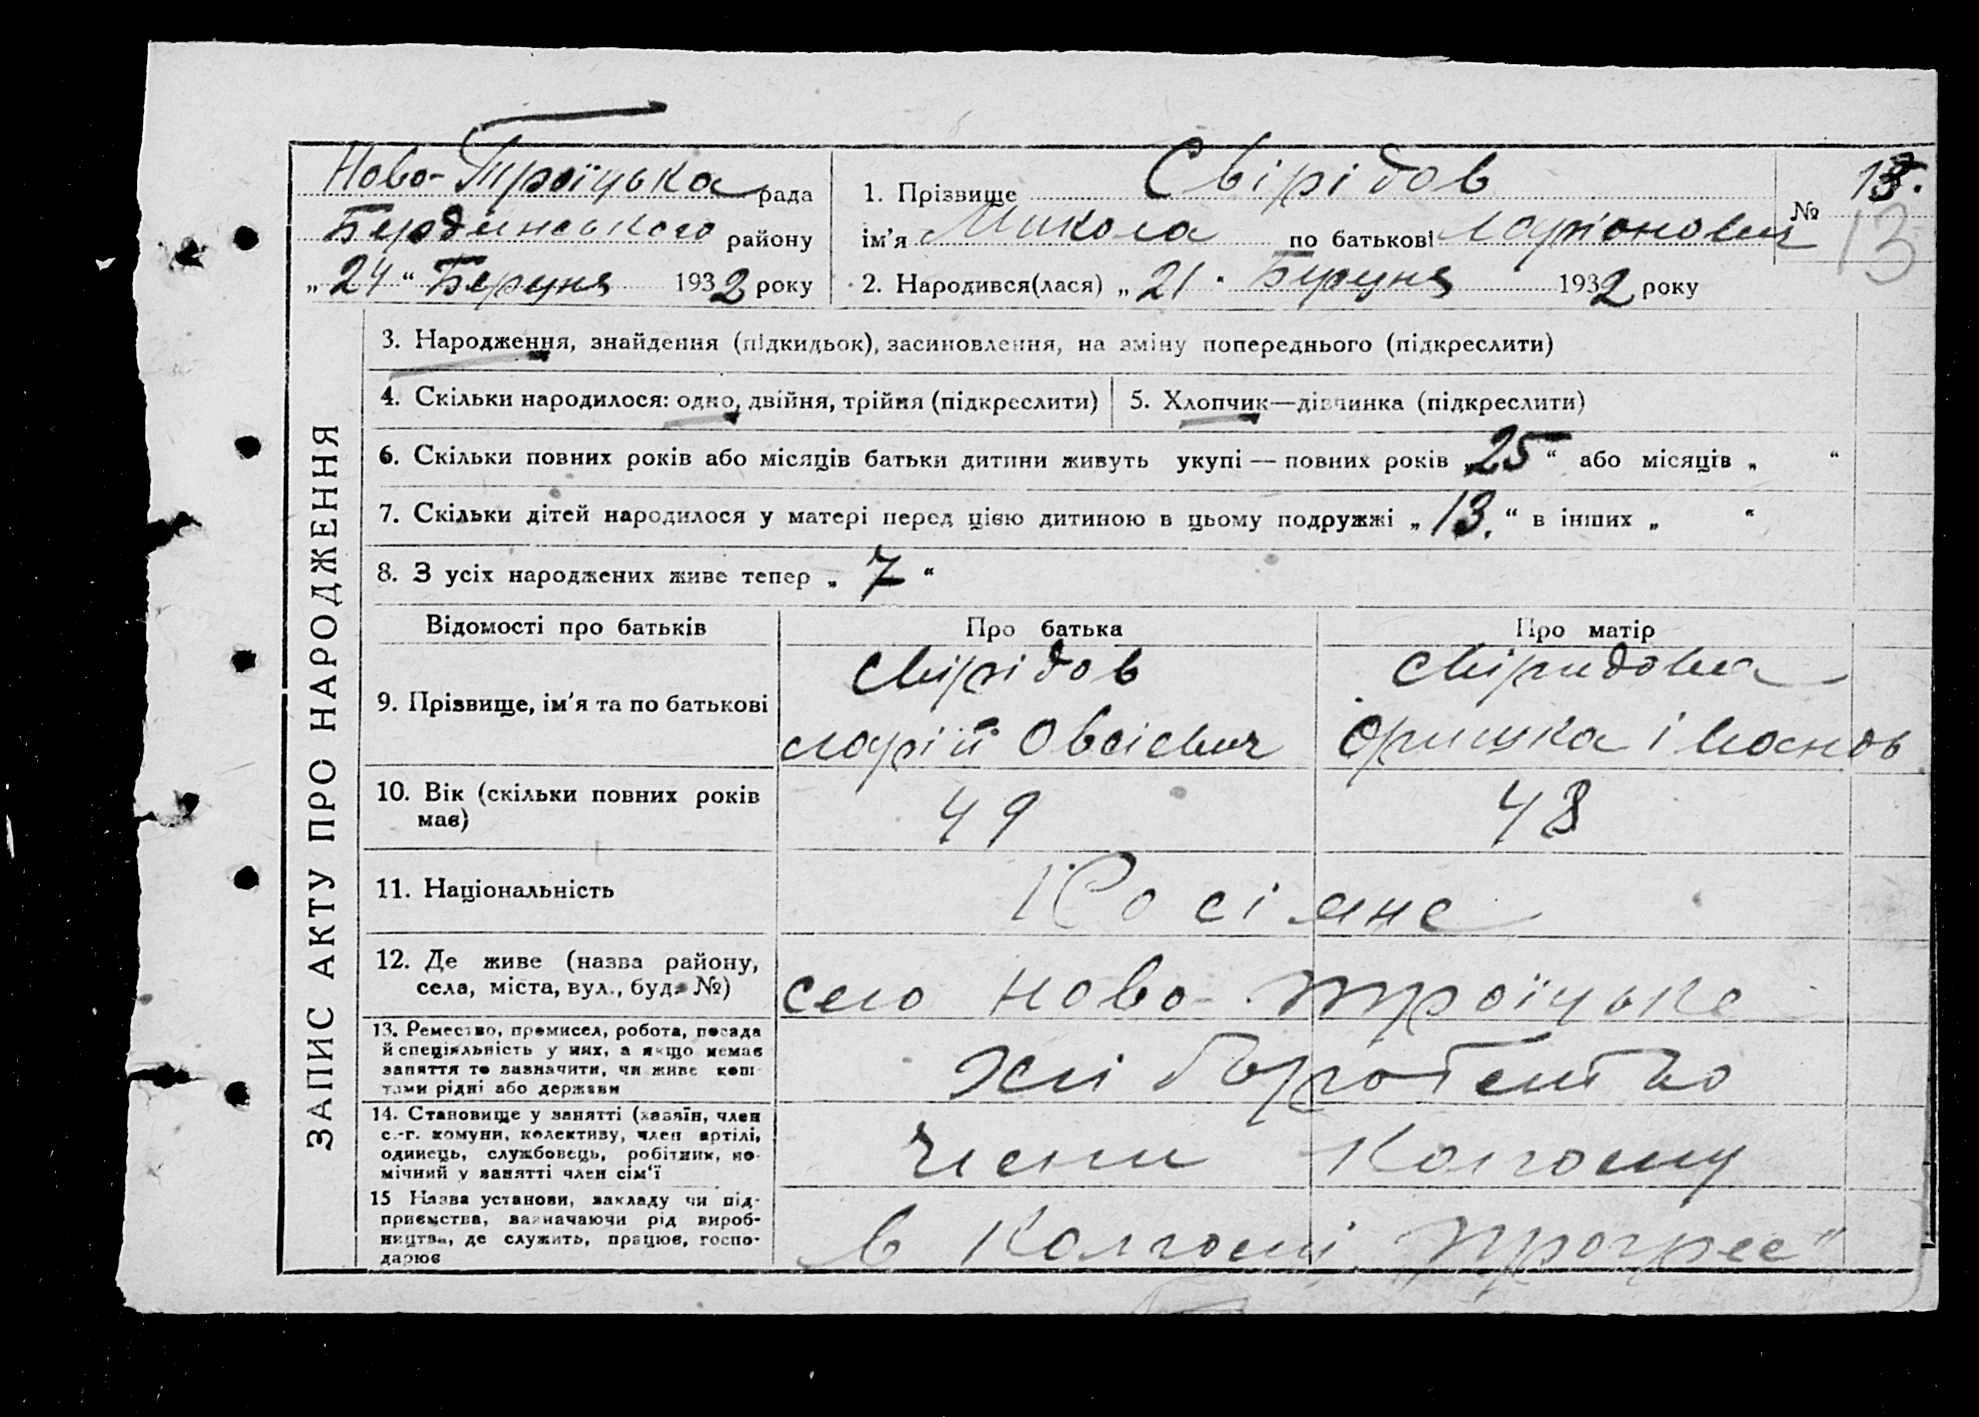 Ново-Троїцька рада
Бердянського району
„24“ Березня 1932 року
1. Прізвище Свірідов
ім'я Микола по батькові Ларіонович
2. Народився(лася) „21" Березня 1932 року
№ 13.
13
ЗАПИС АКТУ ПРО НАРОДЖЕННЯ
3. Народження, знайдення (підкидьок), засиновлення, на зміну попереднього (підкреслити)
4. Скільки народилося: одно, двійня, трійня (підкреслити)
5. Хлопчик—дівчинка (підкреслити)
6. Скільки повних років або місяців батьки дитини живуть укупі — повних років „25“ або місяців „ “
7. Скільки дітей народилося у матері перед цією дитиною в цьому подружжі „13.“ в інших „ “
8. З усіх народжених живе тепер „7“
Відомості про батьків
Про батька
Про матір
9. Прізвище, ім'я та по батькові
Свірідов
Ларій Овсієвич
Свіридова
Оришка Іванов
10. Вік (скільки повних років
має)
49
48
11. Національність
Росіяне
12. Де живе (назва району,
села, міста, вул., буд. №)
село Ново-Троїцьке
13. Ремество, промисел, робота, посада
й спеціяльність у них, а якщо немає
заняття то зазначити, чи живе кош-
тами рідні або держави
Хліборобство
14. Становище у занятті (хазяїн, член
с.-г. комуни, колективу, член артілі,
одинець, службовець, робітник, по-
мічний у занятті член сім'ї
Члени Колгоспу
15 Назва установи, закладу чи під-
приємства, зазначаючи рід вироб-
ництва, де служить, працює, госпо-
дарює
в Колгоспі „Прогрес"